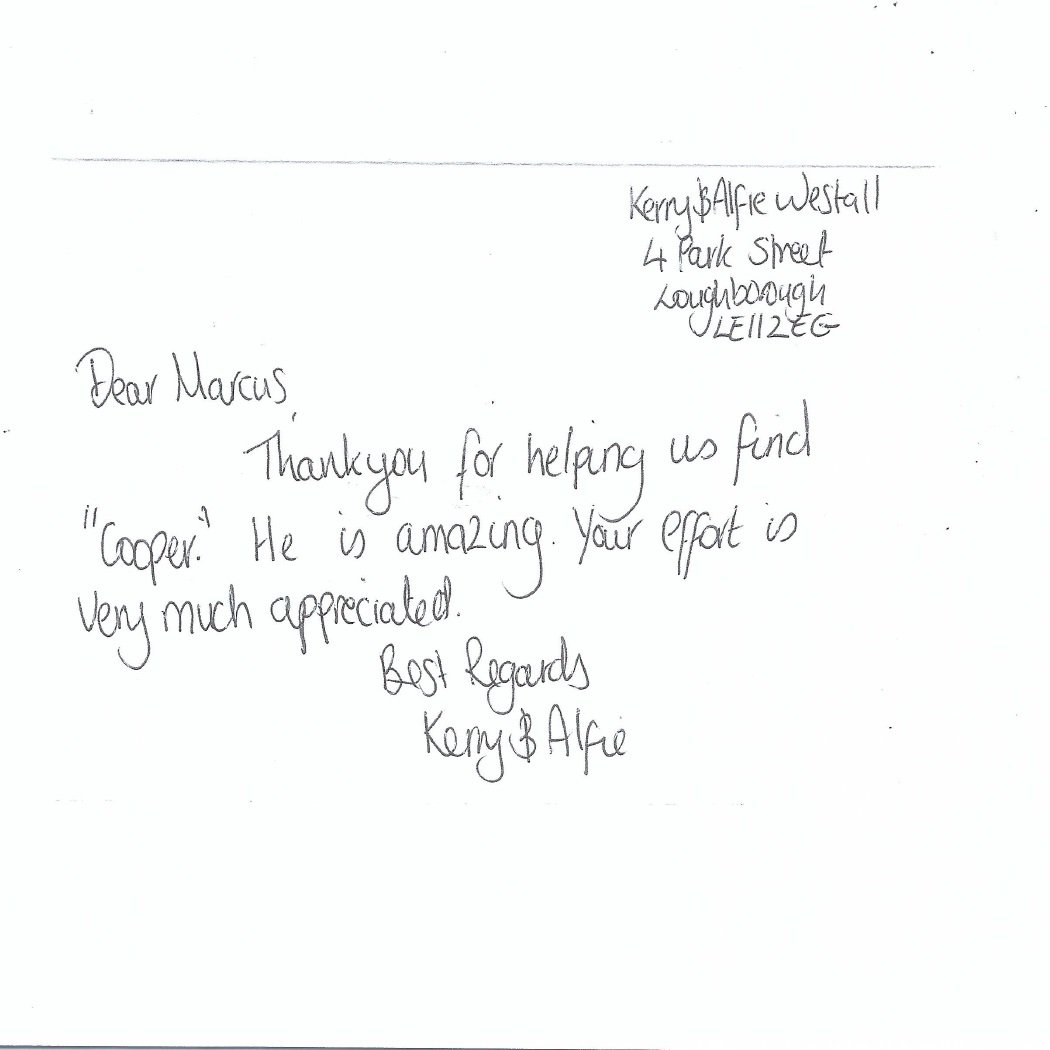 Kerry & Alfie Westall
4 Park Street
Loughborough
LE11 2EG
Dear Marcus,
Thankyou for helping us find
"Cooper." He is amazing. Your effort is
very much appreciated.
Best Regards
Kerry & Alfie